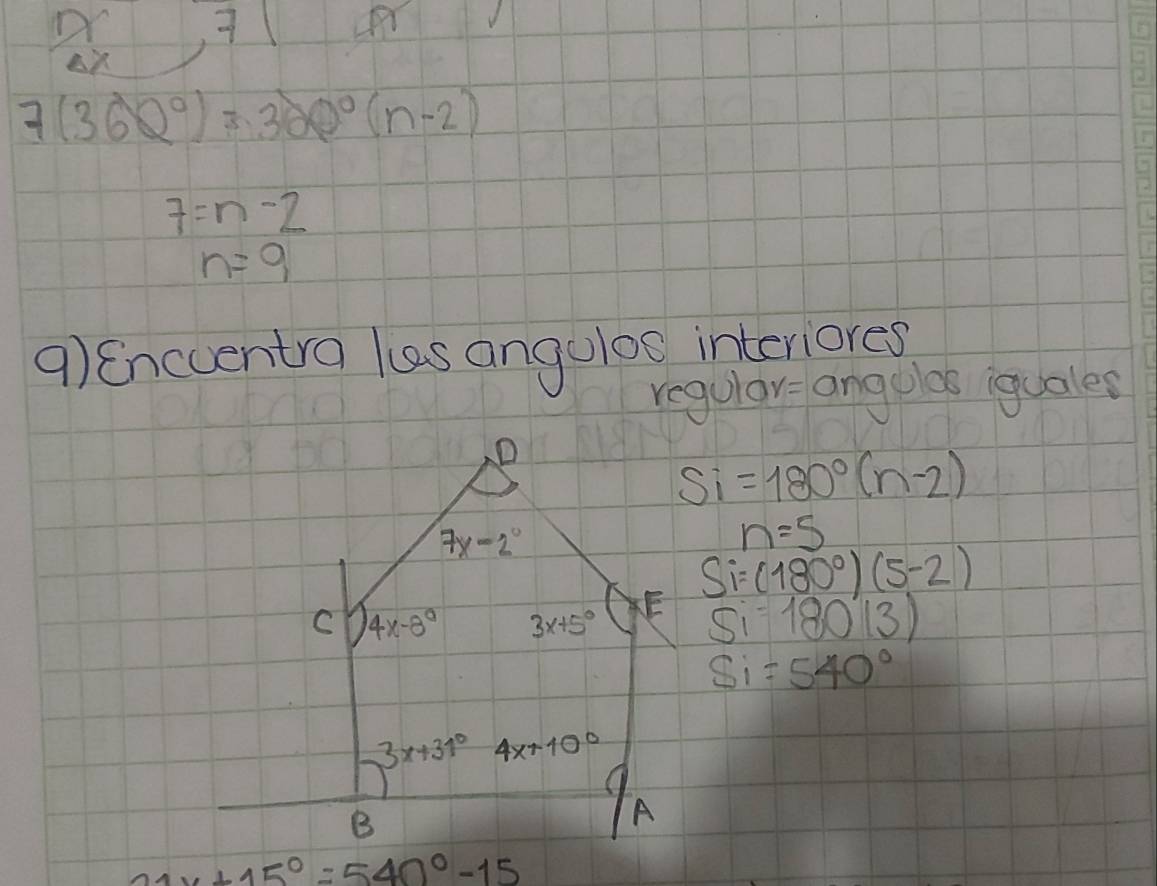 7
4x
7(360°) = 360°(n-2)
7=n-2
n=9
9) Encuentra los angulos interiores
regular=angulos iguales
D
7x-2°
C
4x-8°
3x+5°
E
3x+31°
4x+10°
B
A
Si=180°(n-2)
n=5
Si=(180°)(5-2)
Si=180(3)
Si=540°
21x+15°=540°-15